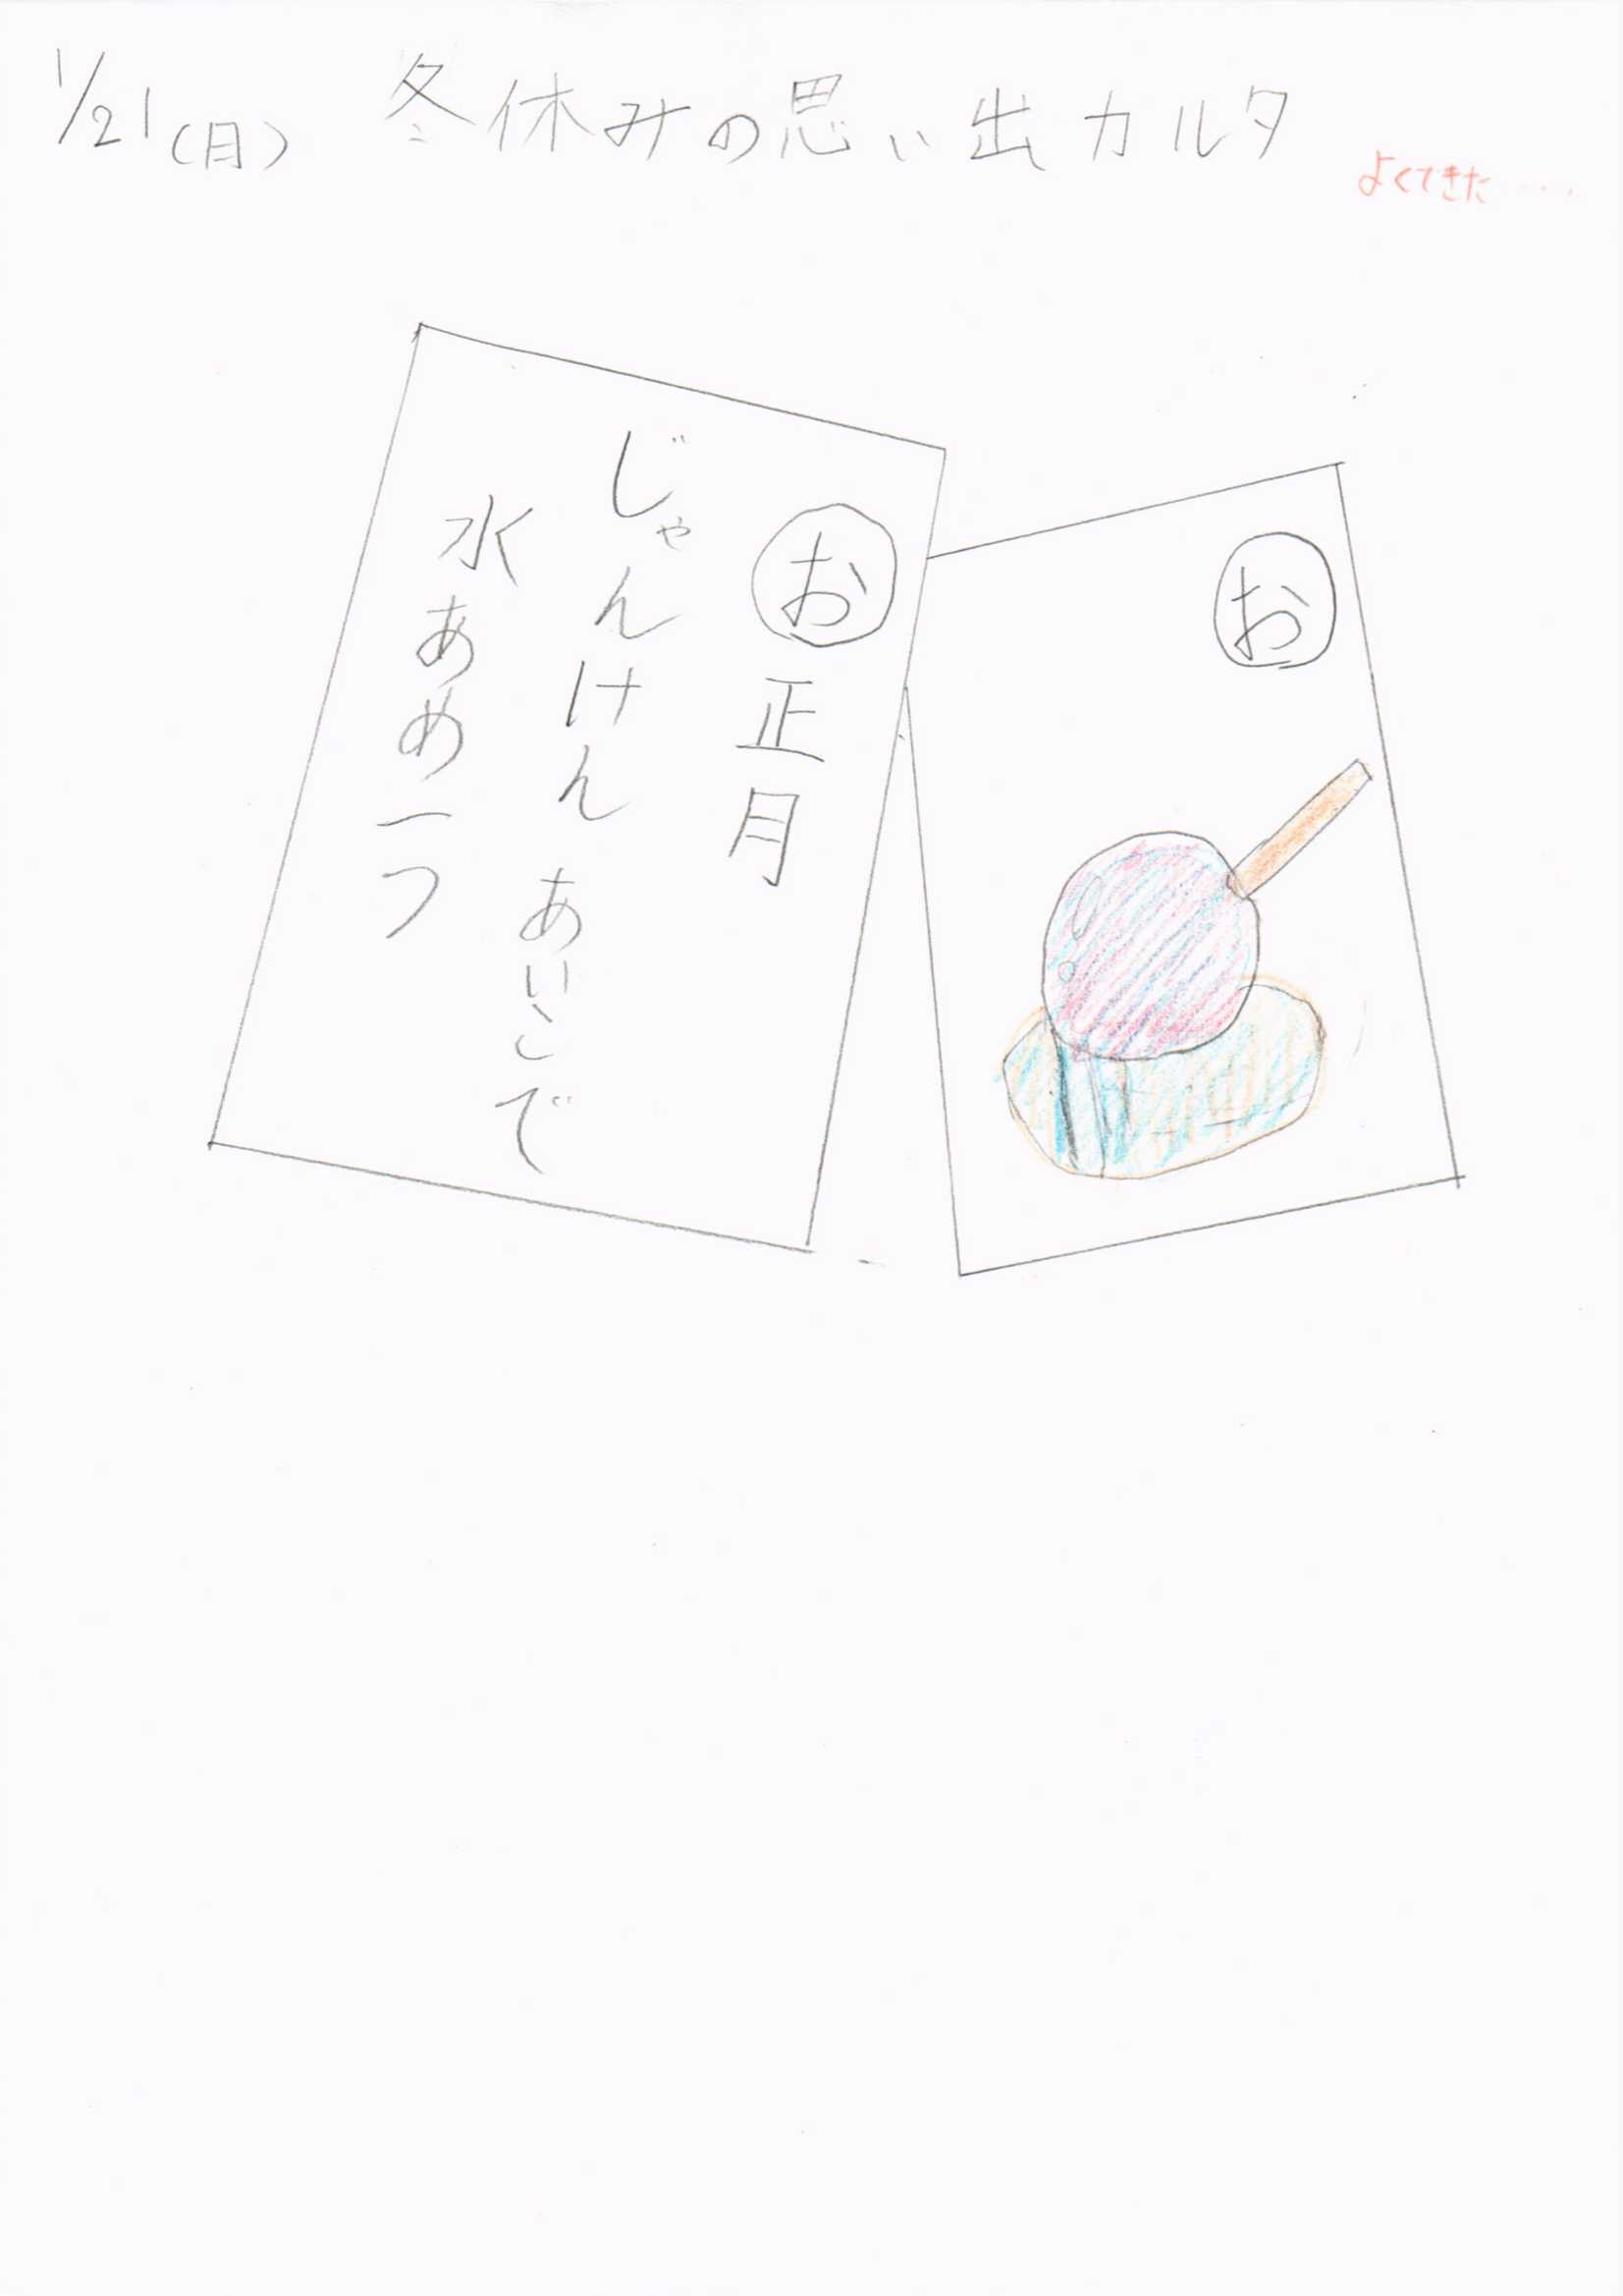 1/21(日) 冬休みの思い出カルタ
よくてきた
お正月
じゃんけん あいこで
水あめ一つ
お